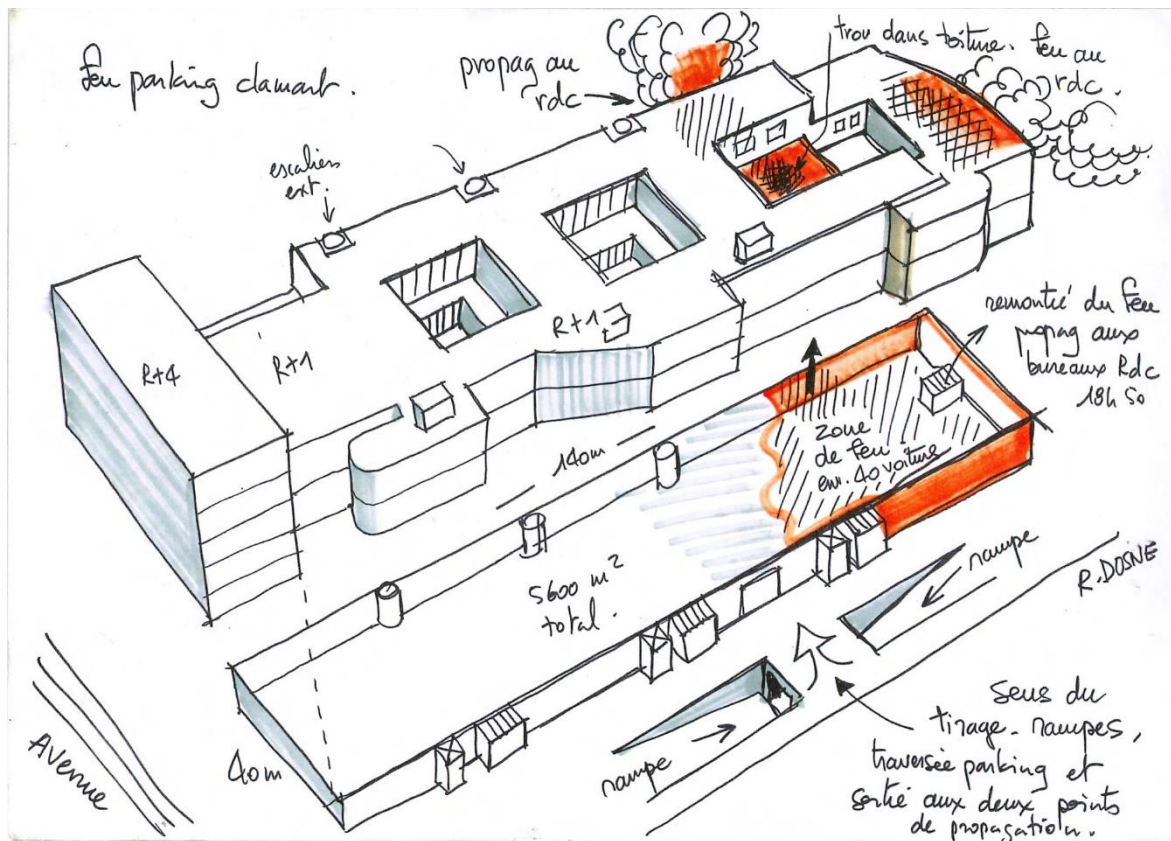 feu parking clamart.
propag au
rdc
trou dans toiture. feu au
rdc.
escaliers
ext.
R+4
R+1
R+1
remontié du feu
propag aux
bureaux Rdc
18h50
140m
zone
de feu
env. 40 voiture
5600 m²
total.
rampe
R. DOSNE
Avenue
40m
rampe
Sens du
tirage. rampes,
traversée parking et
sortié aux deux points
de propagation.